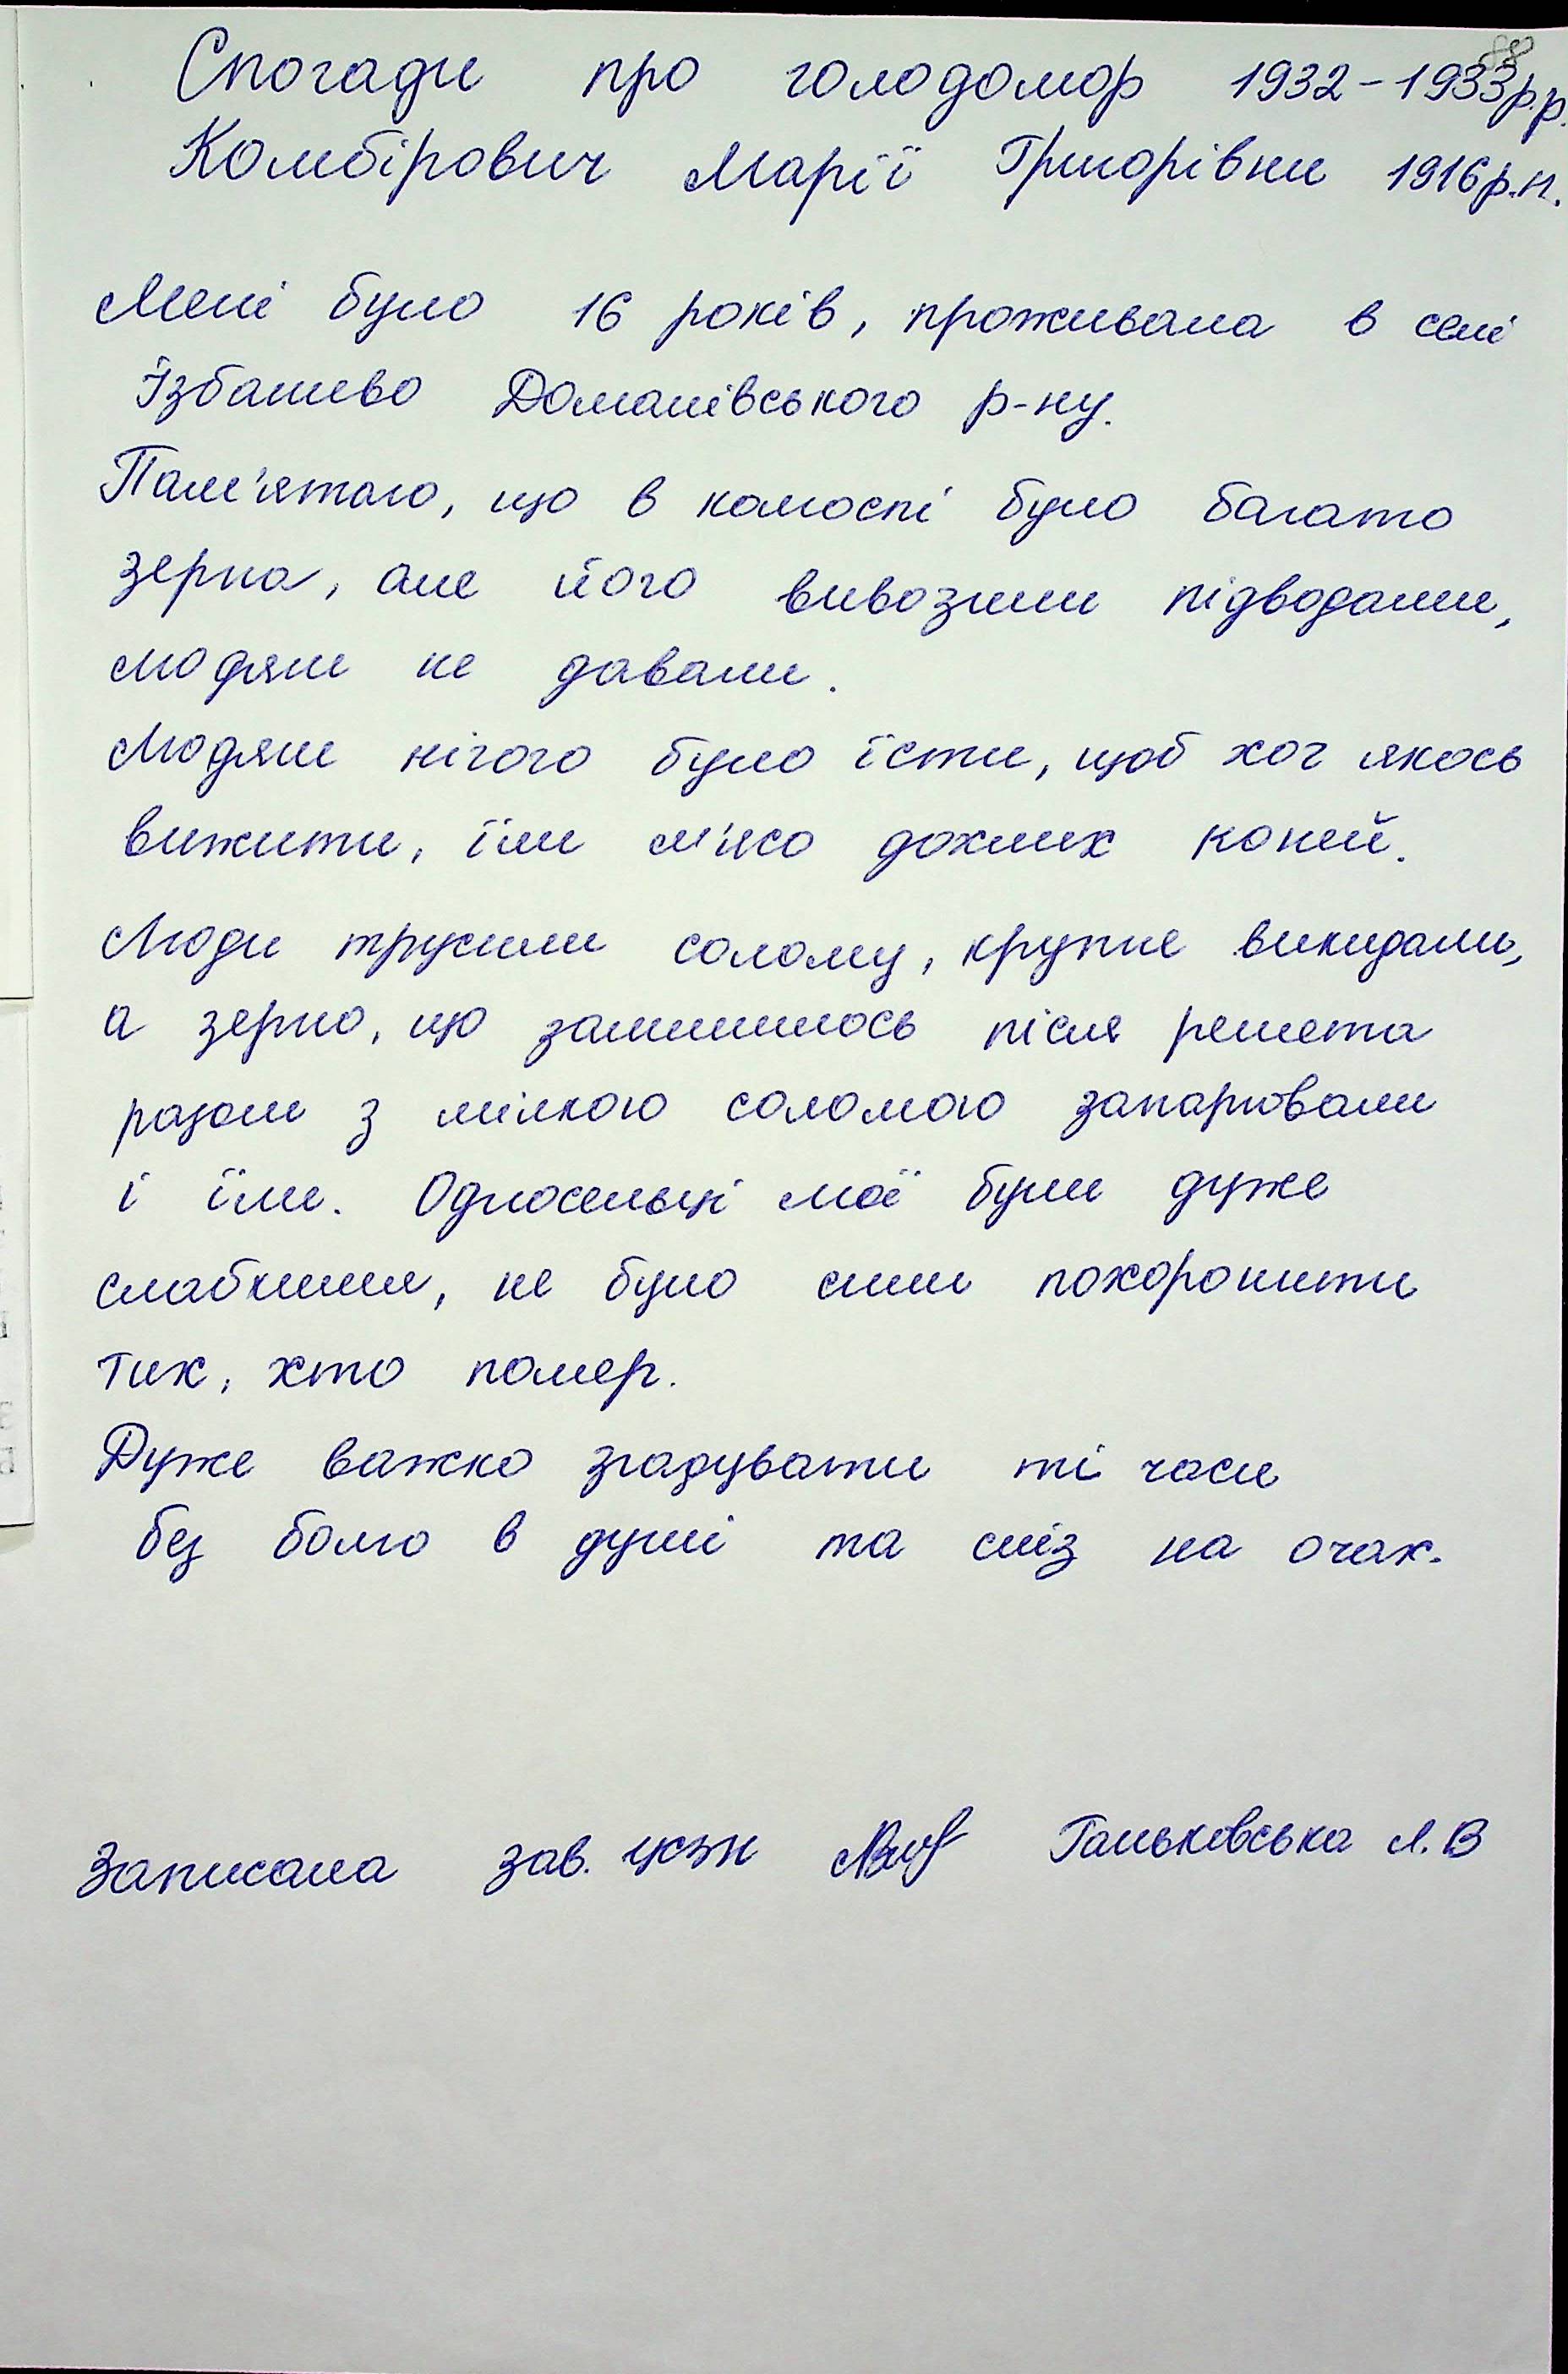 88
Спогади про голодомор 1932-1933р.р.
Колібірович Марії Григорівни 1916р.н.
Мені було 16 років, проживала в селі
Ізбашево Доманівського р-ну.
Пам'ятаю, що в колоспі було багато
зерна, але його вивозили підводами,
людям не давали.
Людям нічого було їсти, щоб хоч якось
вижити, їли м'ясо дохлих коней.
Люди трусили солому, крупне викидали,
а зерно, що залишилось після решета
разом з мілкою соломою запарювали
і їли. Односельці мої були дуже
слабкими, не було сили похоронити
тих, хто помер.
Дуже важко згадувати ті часи
без болю в душі та сліз на очах.
Записала зав. УСЗН Ганьковська Л.В